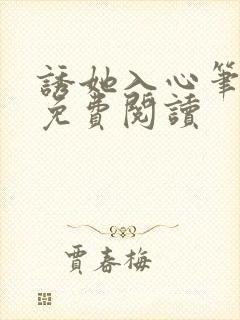 誘她入心筆
免費閱讀
賈春梅